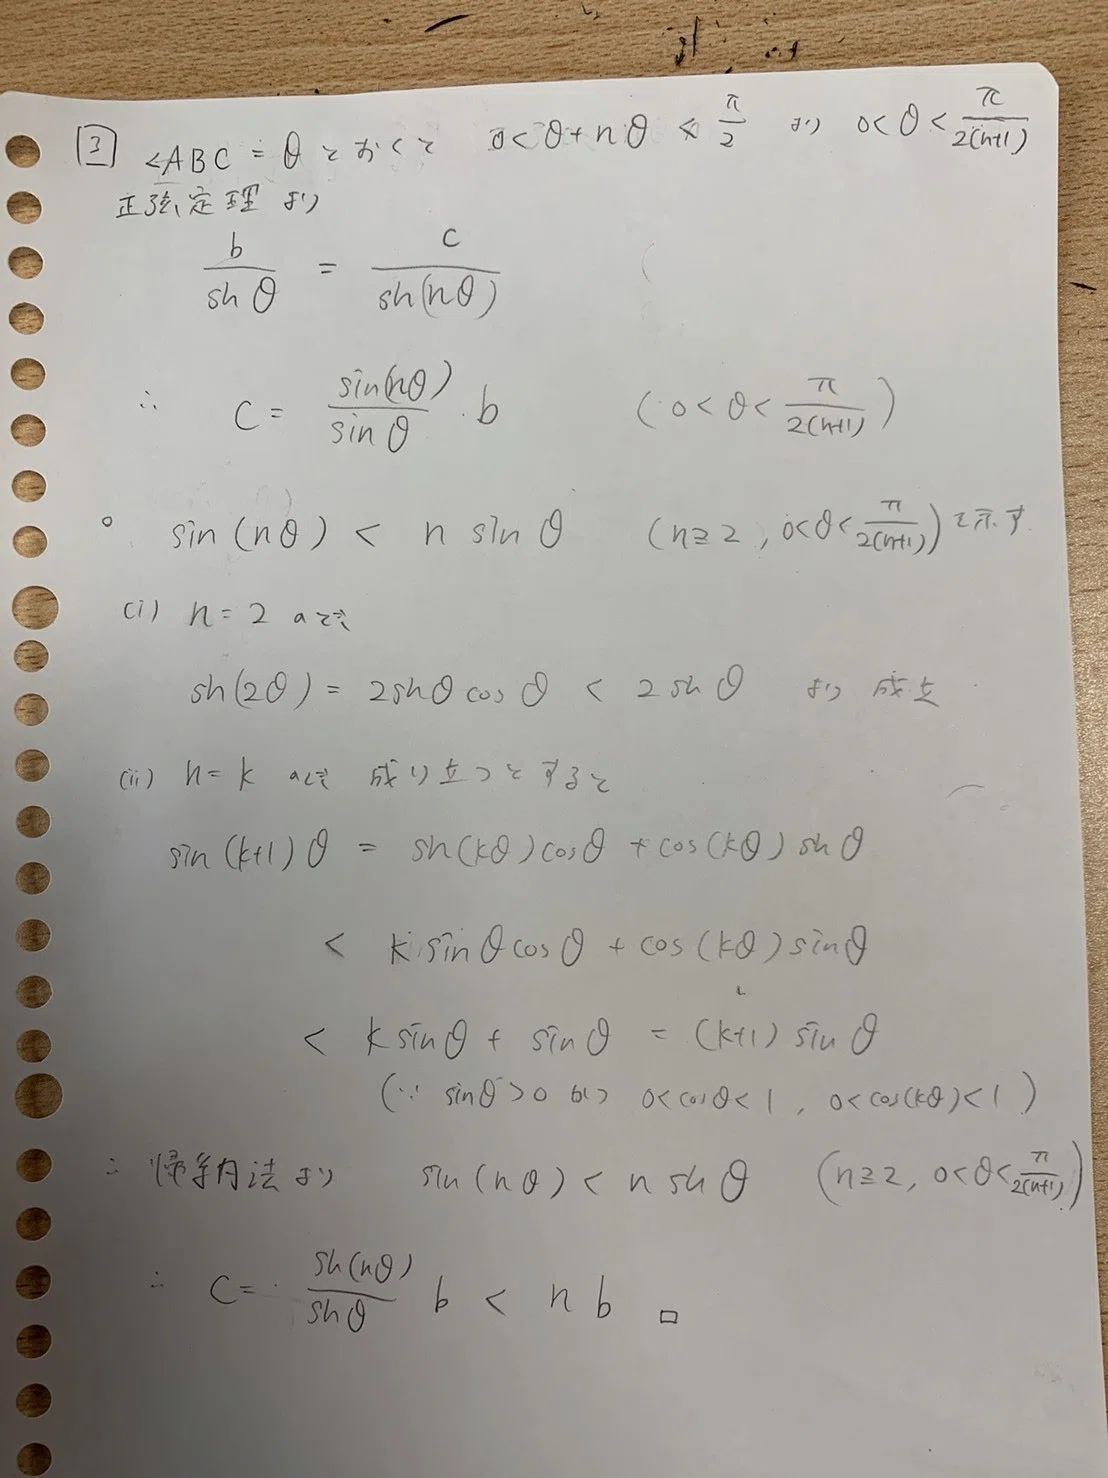 3 ∠ABC = θ とおくと 0 < θ + nθ ≦ π/2 より 0 < θ < π/2(n+1)
正弦定理より
b/sinθ = c/sin(nθ)
∴ c = sin(nθ)/sinθ ・b (0 < θ < π/2(n+1))
○ sin(nθ) < n sinθ (n≧2, 0<θ<π/2(n+1)) を示す
(i) n = 2 のとき
sin(2θ) = 2sinθcosθ < 2sinθ より 成立
(ii) n = k のとき 成り立つとすると
sin(k+1)θ = sin(kθ)cosθ + cos(kθ)sinθ
< k sinθcosθ + cos(kθ)sinθ
< k sinθ + sinθ = (k+1) sinθ
(∵ sinθ>0 かつ 0<cosθ<1, 0<cos(kθ)<1)
∴ 帰納法より sin(nθ) < n sinθ (n≧2, 0<θ<π/2(n+1))
∴ c = sin(nθ)/sinθ b < nb □